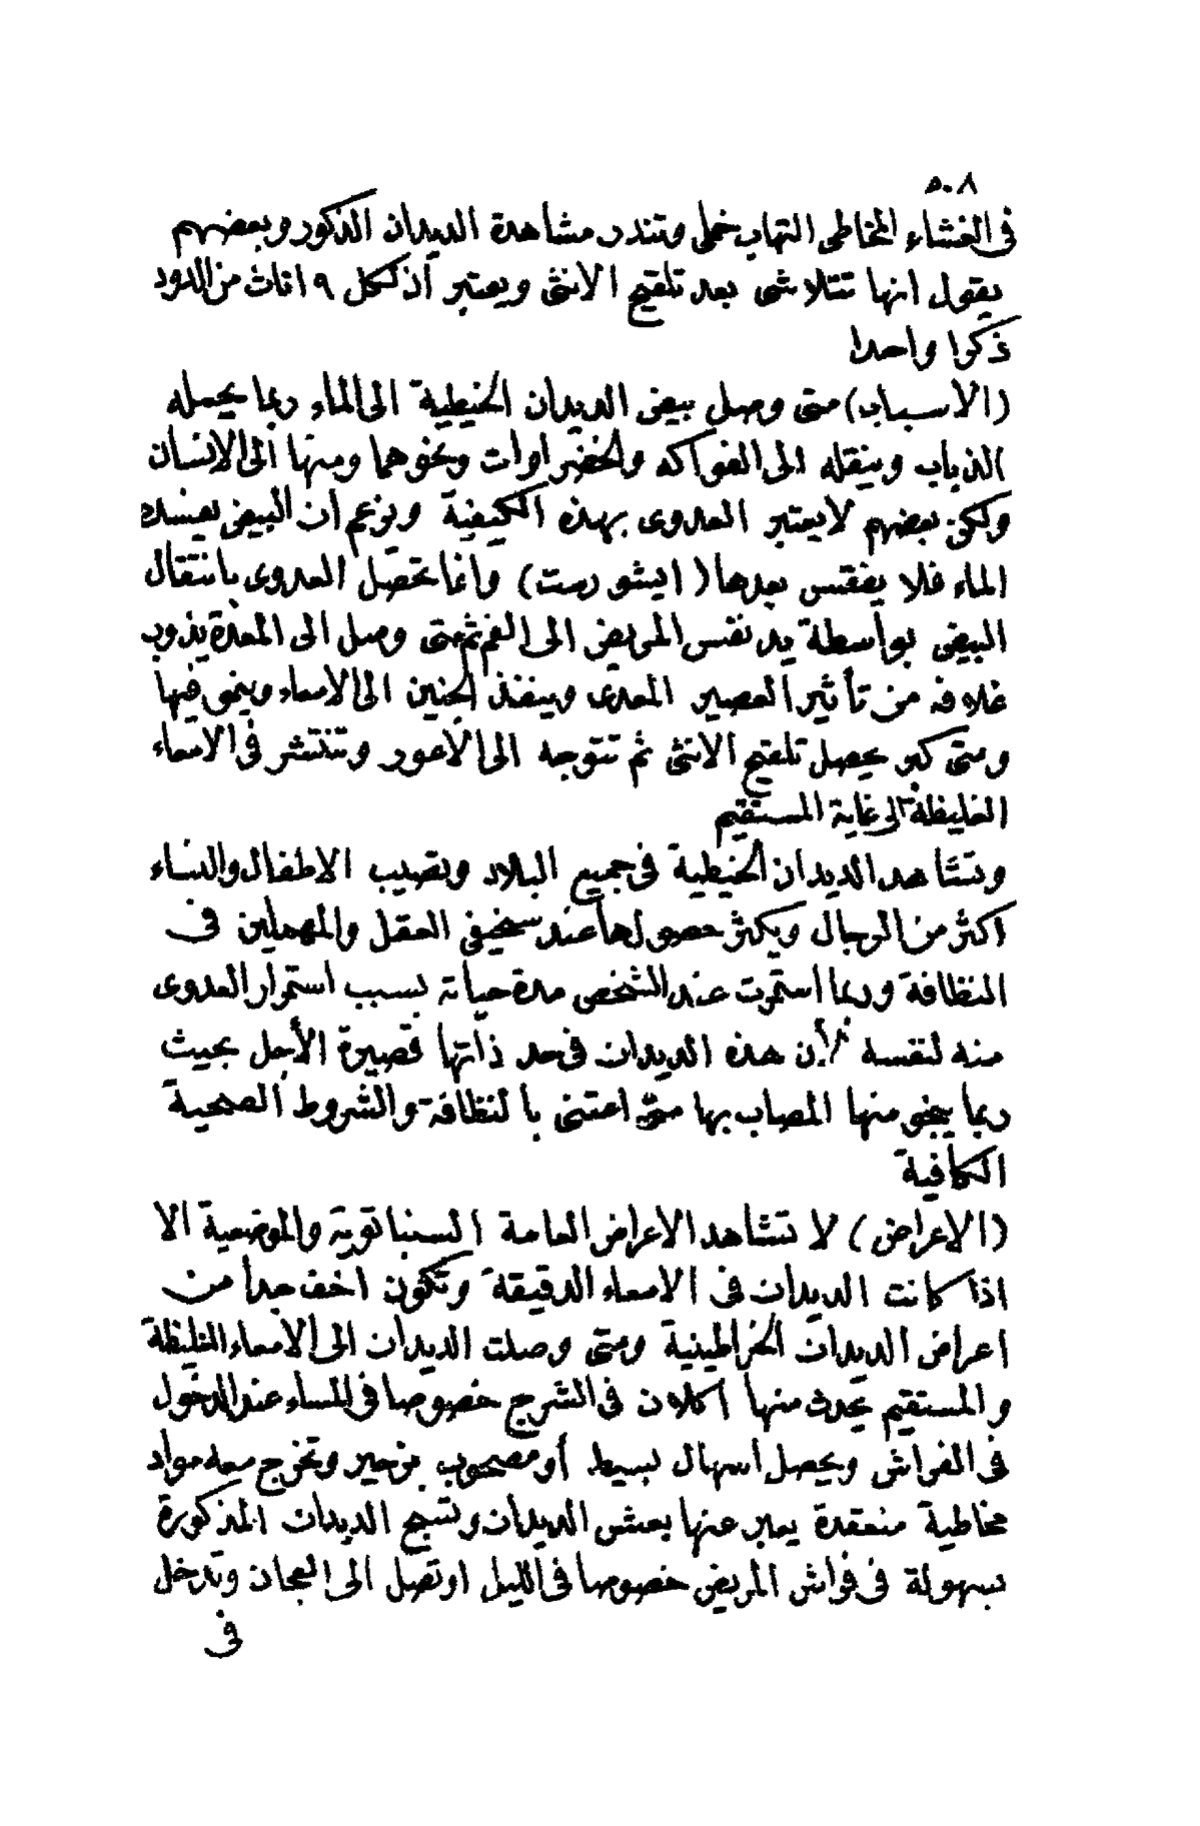 ٥٠٨
فى الغشاء المخاطى التهاب خملى وتندر مشاهدة الديدان الذكور وبعضهم
يقول انها تتلاشى بعد تلقيح الانثى ويعتبر أن لكل ٩ اناث من الدود
ذكرا واحدا
(الاسباب) متى وصل بيض الديدان الخيطية الى الماء ربما يحمله
الذباب وينقله الى الفواكه والخضراوات ونحوهما ومنها الى الانسان
ولكن بعضهم لا يعتبر العدوى بهذه الكيفية ويزعم ان البيض يفسده
الماء فلا يفقس بعدها (اليشورست) وانما تحصل العدوى بانتقال
البيض بواسطة يد نفس المريض الى الفم ثم متى وصل الى المعدة يذوب
غلافه من تأثير العصير المعدى وينفذ الجنين الى الامعاء وينمى فيها
ومتى كبر يحصل تلقيح الانثى ثم تتوجه الى الاعور وتنتشر فى الامعاء
الغليظة الى غاية المستقيم
وتشاهد الديدان الخيطية فى جميع البلاد وتصيب الاطفال والنساء
اكثر من الرجال ويكثر حصولها عند سخيفى العقل والمهملين فى
النظافة وربما استمرت عند الشخص مدة حياته بسبب استمرار العدوى
منه لنفسه لأن هذه الديدان فى حد ذاتها قصيرة الأجل بحيث
ربما ينجو منها المصاب بها متى اعتنى بالنظافة والشروط الصحية
الكافية
(الاعراض) لا تشاهد الاعراض العامة السنباتوية والموضعية الا
اذا كانت الديدان فى الامعاء الدقيقة وتكون اخف جدا من
اعراض الديدان الخراطينية ومتى وصلت الديدان الى الامعاء الغليظة
والمستقيم يحدث منها اكلان فى الشرج خصوصا فى المساء عند الدخول
فى الفراش ويحصل اسهال بسيط أو مصحوب بزحير وتخرج معه مواد
مخاطية منعقدة يعبر عنها بعش الديدان وتسبح الديدان المذكورة
بسهولة فى فراش المريض خصوصا فى الليل او تصل الى العجان وتدخل
فى